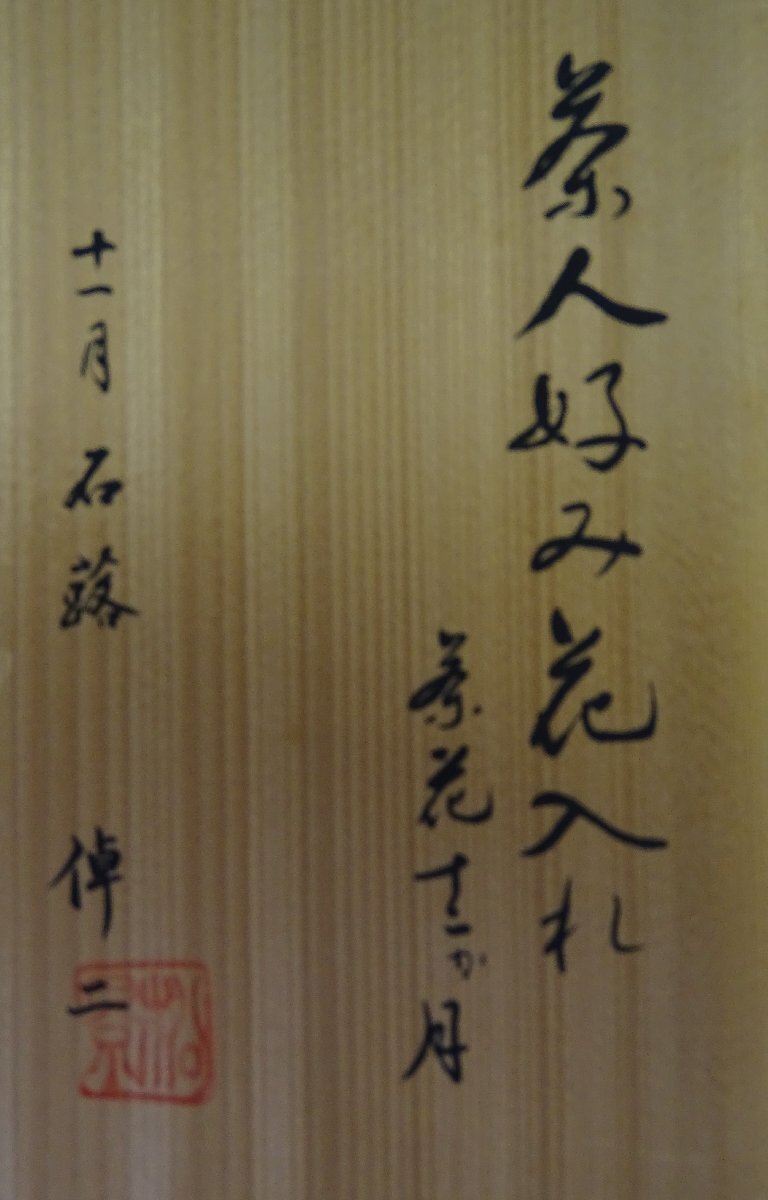 茶人好み花入札
茶花十二か月
十一月 石蕗 倬二